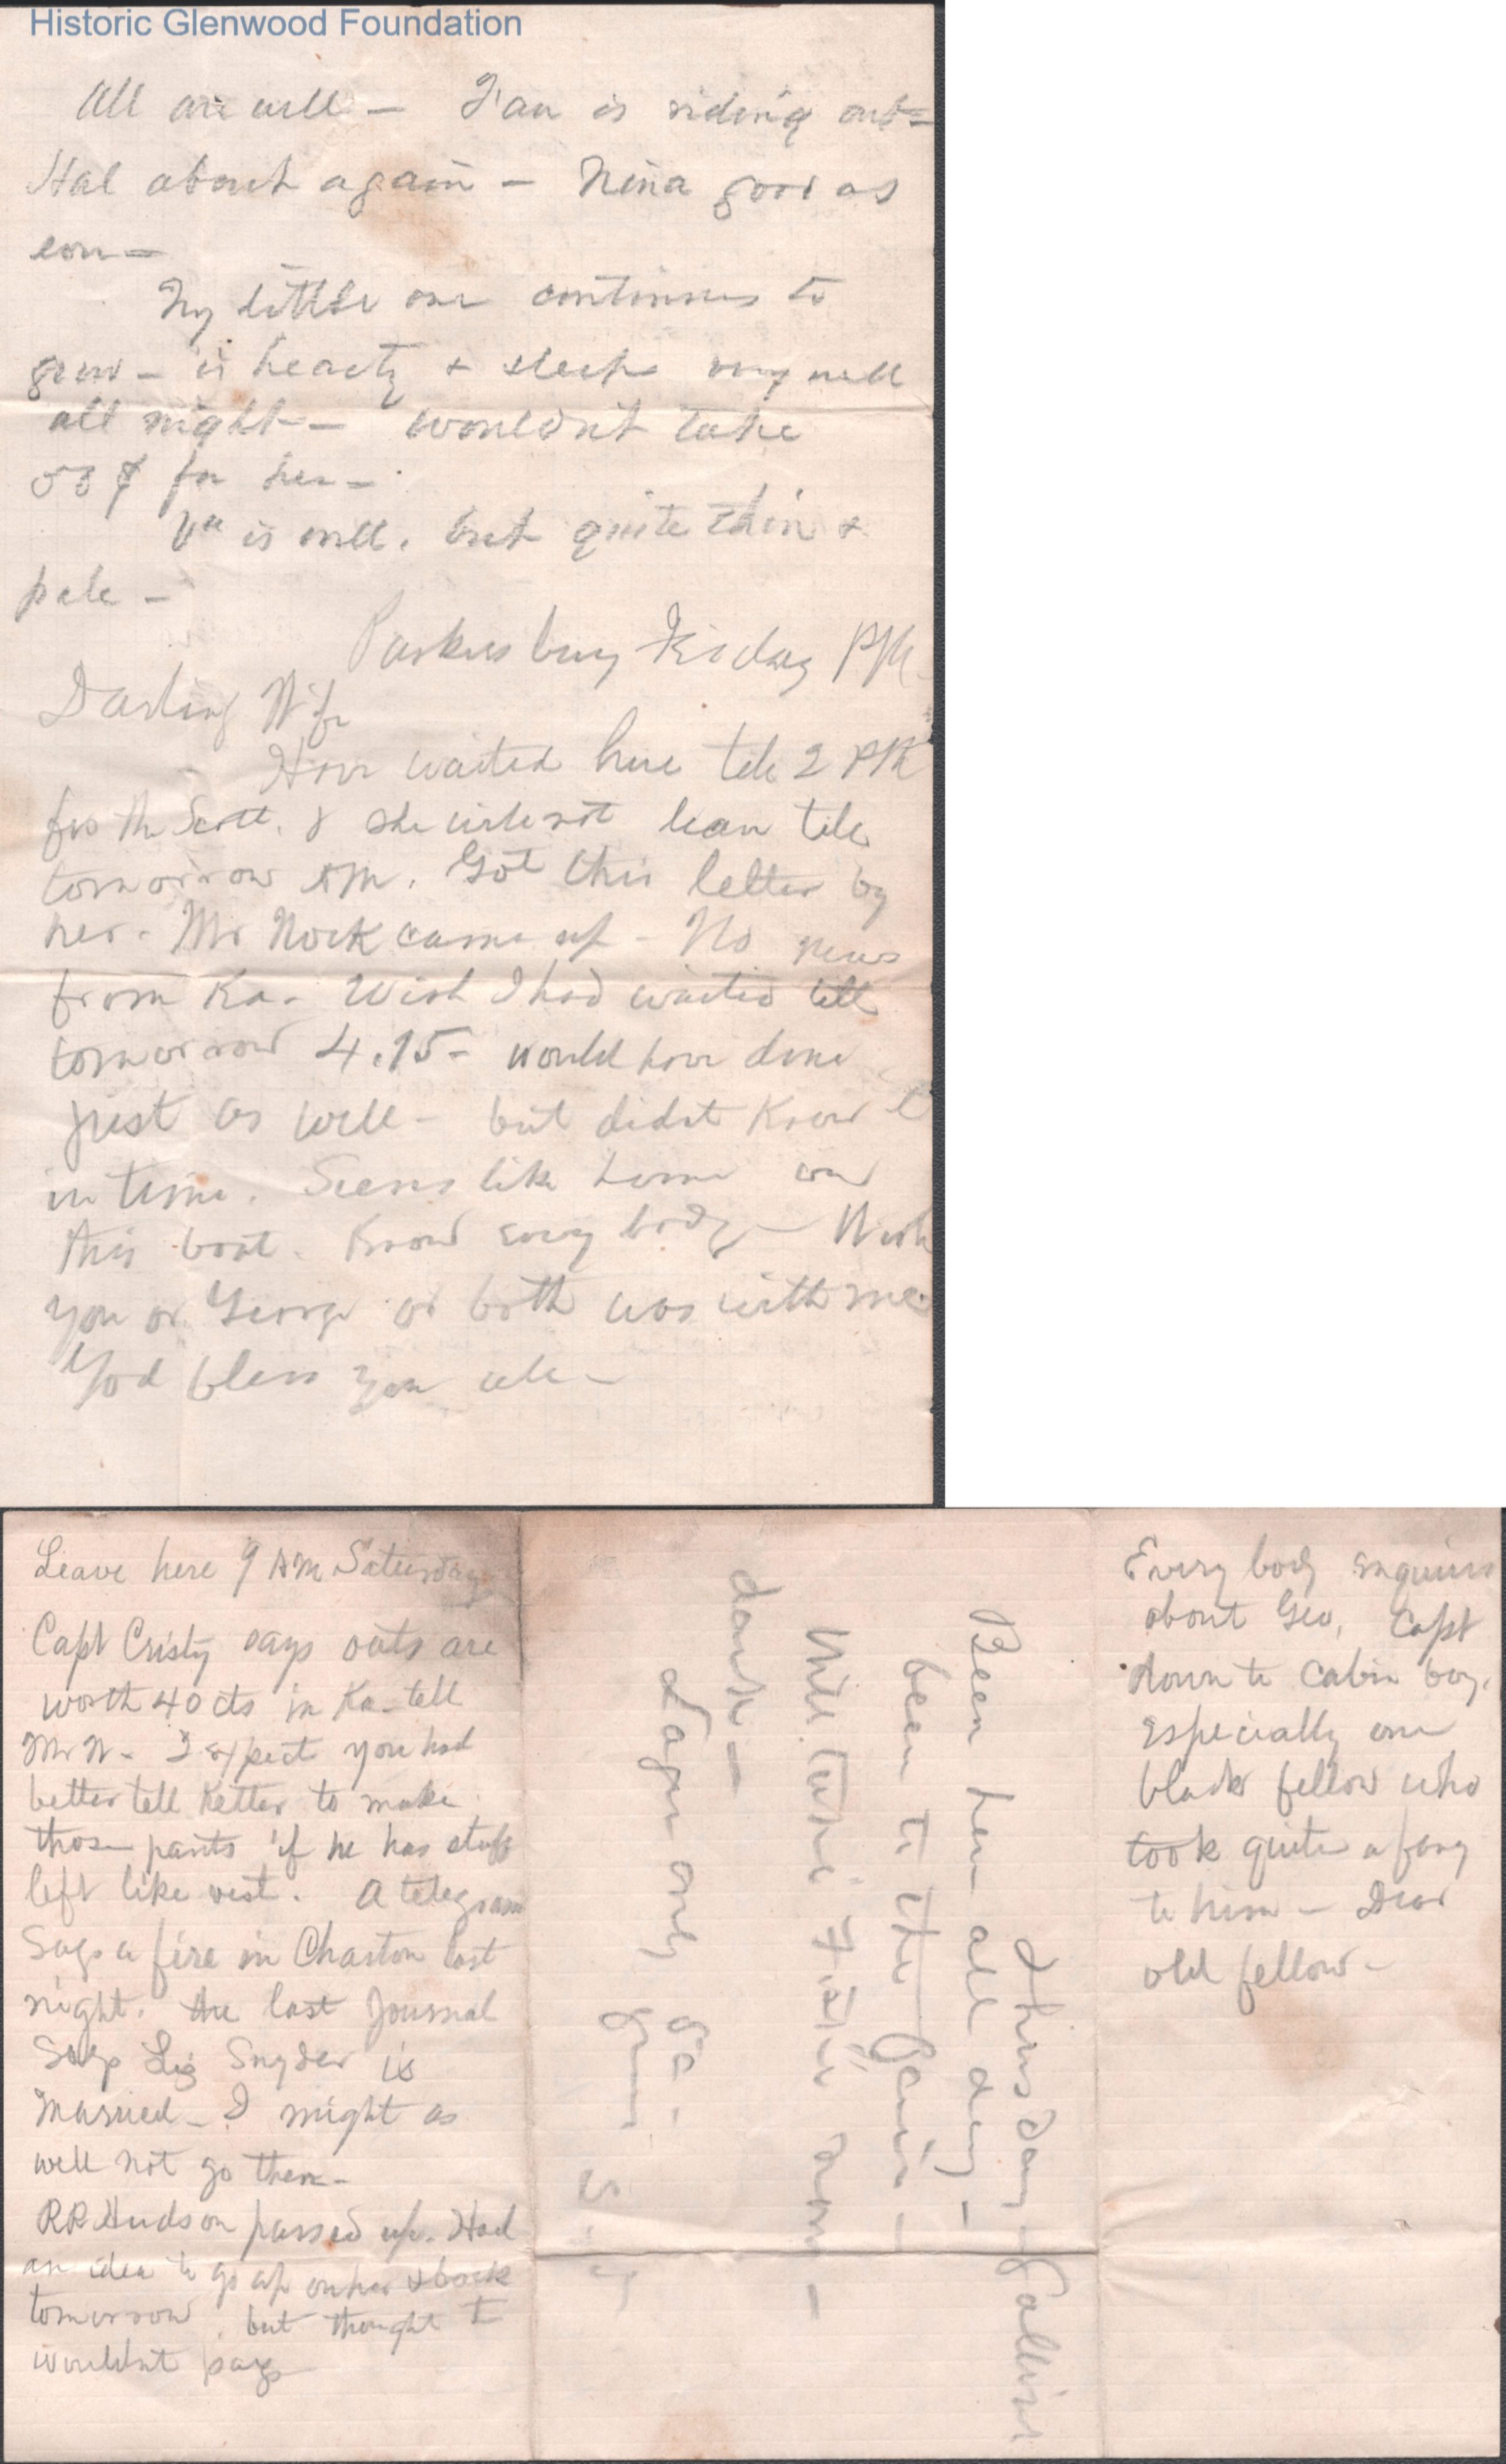 Historic Glenwood Foundation
All are well - Fan is riding out-
Hal about again - Nina good as
ever -
My little one continues to
grow - is hearty & sleeps very well
all night - wouldn't take
for her -
Va is well. but quite thin &
pale -
Parkersburg Friday PM
Darling Wife
Have waited here till 2 PM
for the Scott. & she will not leave till
tomorrow AM. Got this letter by
her. Mr Nock came up - No news
from Ka. Wish I had waited till
tomorrow 4.15 - would have done
just as well - but didnt know it
in time. Seems like home on
this boat. Know every body - Wish
you or George or both was with me
God bless you all -
Leave here 9 AM Saturday
Capt Cristy says oats are
worth 40 cts in Ka - tell
Mr W - I expect you had
better tell Ketter to make
those pants if he has stuff
left like vest. A telegram
says a fire in Chaston last
night. the last Journal
says Liz Snyder is
Married - I might as
well not go there -
RR Hudson passed up. Had
an idea to go up on her & back
tomorrow, but thought it
wouldnt pay
Thursday - Gallipolis
Been here all day -
been to the Fair -
Will take down -
dark -
only
Every body enquires
about Geo, Capt
down to Cabin boy.
Especially one
black fellow who
took quite a fancy
to him - Dear
old fellow -